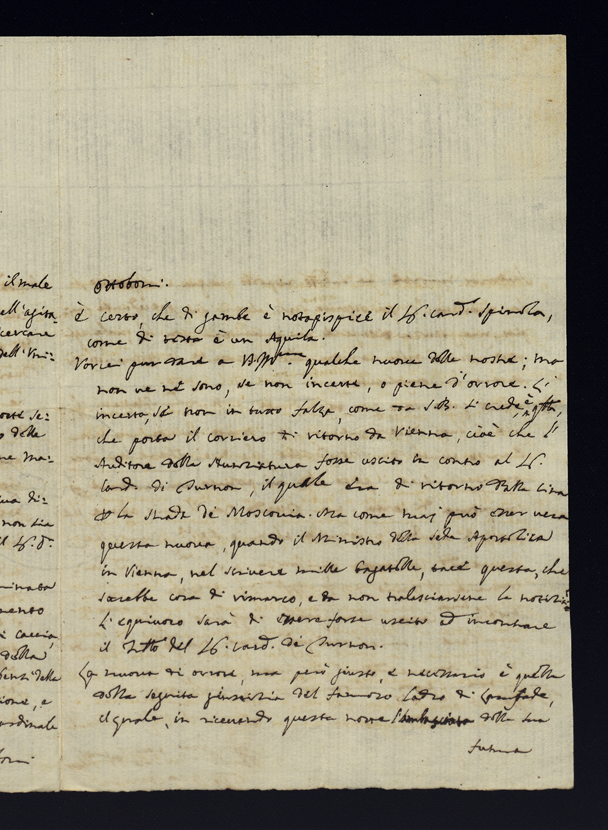 il male
ell'agita-
cercare
dell'Uni-
se-
o delle
me ma-
di-
non sia
il
minata
mento
i caccia,
della
delle
ione, e
ardinale
Ottoboni.
è certo, che di gambe è il Sig. Card. Spinola,
come di testa è un Aquila.
Vorrei pur dare a qualche nuova delle nostre; ma
non ve ne sono, se non incerte, o piene d'orrore. L'
incerta, se non in tutto falsa, come da si crede, è
che porta il corriero di ritorno da Vienna, cioè che l'
Auditore della Nunziatura fosse uscito in contro al Sig.
Card. di Turnon, il quale era di ritorno dalla Cina
p la strada di Moscovia. Ma come mai può esser vera
questa nuova, quando il Ministro della Sede Apostolica
in Vienna, nel scrivere mille bagatelle, tace questa, che
sarebbe cosa di rimarco, e da non tralasciarsene la notizia?
L'equivoco sarà di essere forse uscito ad incontrare
il del Sig. Card. di Turnon.
La nuova di orrore, ma però giusta, e necessaria è quella
della seguita giustizia del famoso Ladro di
il quale, in ricevendo questa notte della sua
futura